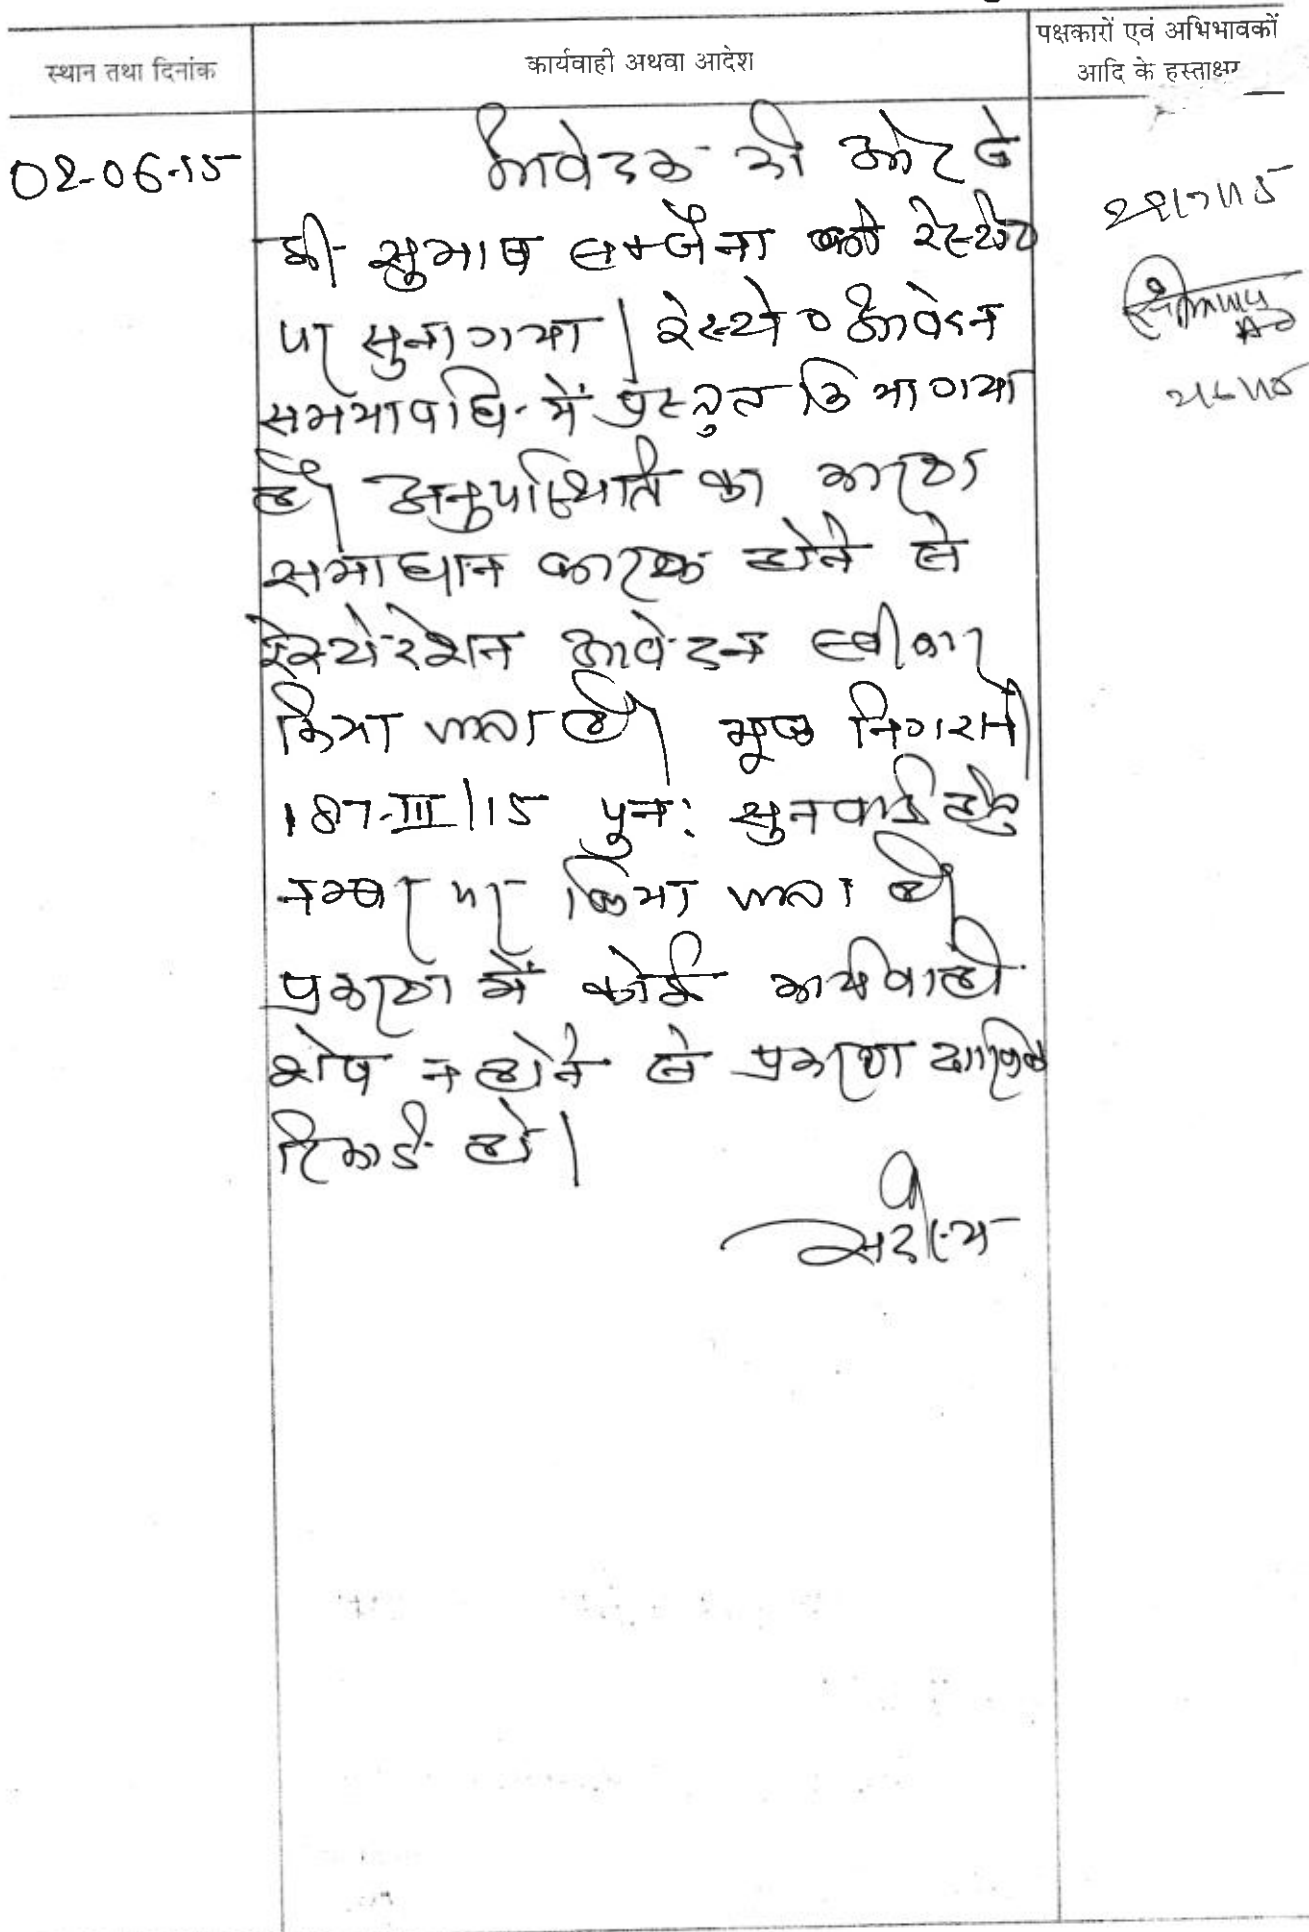 स्थान तथा दिनांक
कार्यवाही अथवा आदेश
पक्षकारों एवं अभिभावकों
आदि के हस्ताक्षर
02-06-15
आवेदक की ओर से
श्री सुभाष सक्सैना को रेस्टो०
पर सुना गया। रेस्टो० आवेदन
समयावधि में प्रस्तुत किया गया
है। अनुपस्थिति का कारण
समाधान कारक होने से
रेस्टोरेशन आवेदन स्वीकार
किया जाता है। मूल निगरानी
187-III/15 पुनः सुनवाई हेतु
नम्बर पर लिया जाता है।
प्रकरण में कोई कार्यवाही
शेष न होने से प्रकरण दाखिल
रिकार्ड हो।
सदस्य